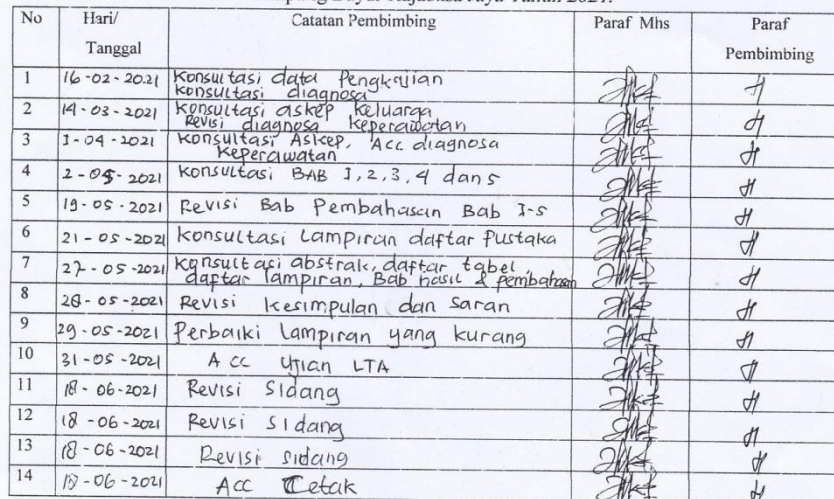 Rajabasa Jaya Tahun 2021.
No Hari/ Tanggal Catatan Pembimbing Paraf Mhs Paraf Pembimbing
1 16-02-2021 Konsultasi data Pengkajian
Konsultasi diagnosa
2 14-03-2021 Konsultasi askep keluarga
Revisi diagnosa keperawatan
3 1-04-2021 Konsultasi Askep, Acc diagnosa
keperawatan
4 2-05-2021 Konsultasi BAB 1,2,3,4 dan 5
5 19-05-2021 Revisi Bab Pembahasan Bab I-5
6 21-05-2021 Konsultasi Lampiran daftar Pustaka
7 27-05-2021 Konsultasi abstrak, daftar tabel
daftar lampiran, Bab hasil & pembahasan
8 28-05-2021 Revisi kesimpulan dan saran
9 29-05-2021 Perbaiki Lampiran yang kurang
10 31-05-2021 Acc Ujian LTA
11 18-06-2021 Revisi Sidang
12 18-06-2021 Revisi Sidang
13 18-06-2021 Revisi sidang
14 18-06-2021 Acc Cetak